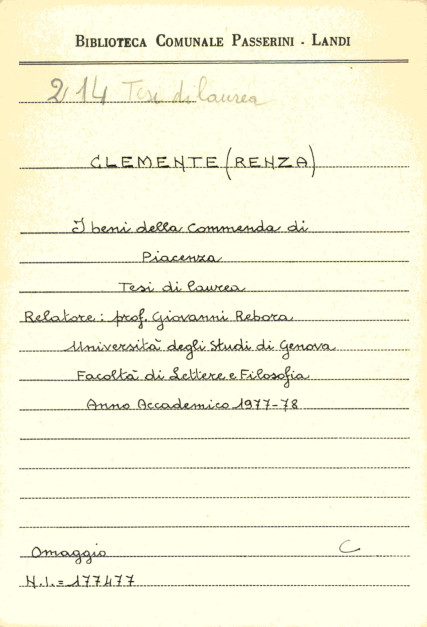 BIBLIOTECA COMUNALE PASSERINI - LANDI
214 Tesi di laurea
CLEMENTE (RENZA)
I beni della Commenda di
Piacenza
Tesi di laurea
Relatore: prof. Giovanni Rebora
Università degli Studi di Genova
Facoltà di Lettere e Filosofia
Anno Accademico 1977-78
Omaggio C
N.I.= 177477